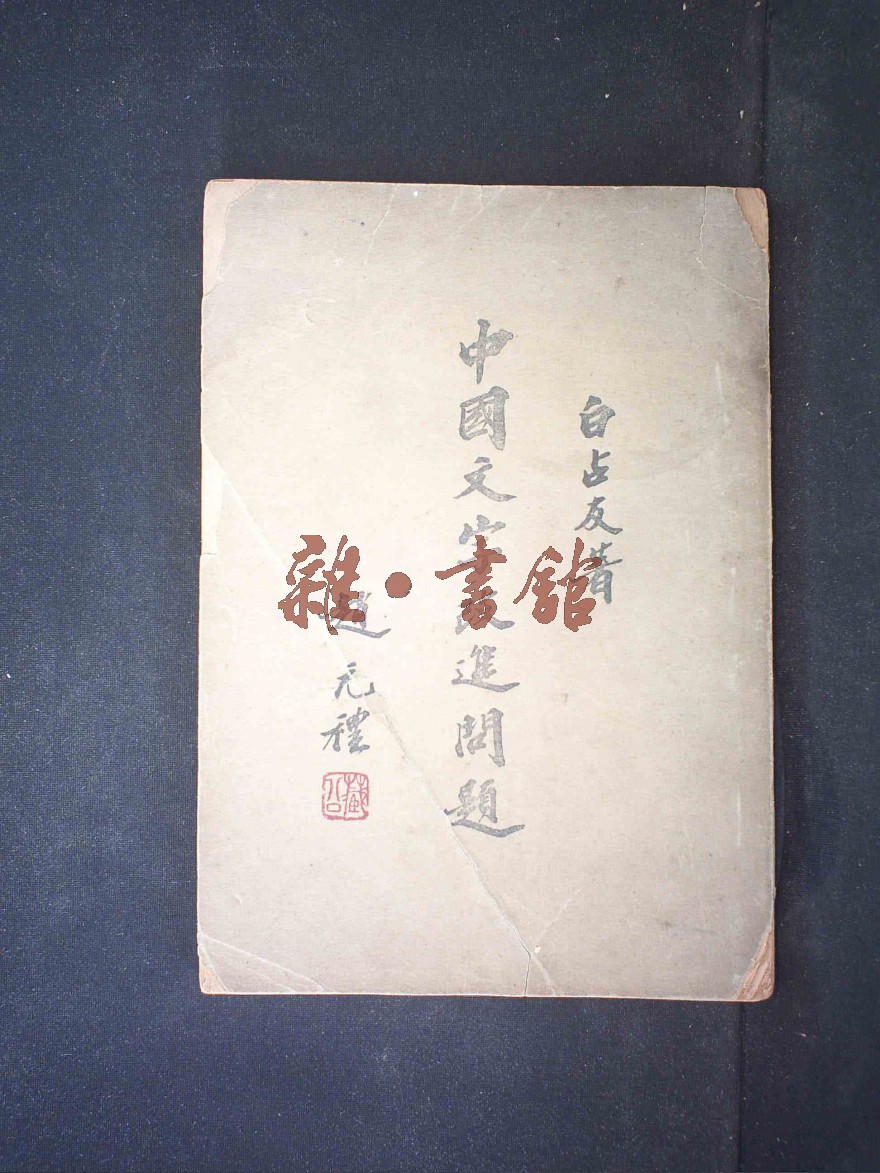 白占友著
中國文字改進問題
趙元禮
藏公
雜•書館